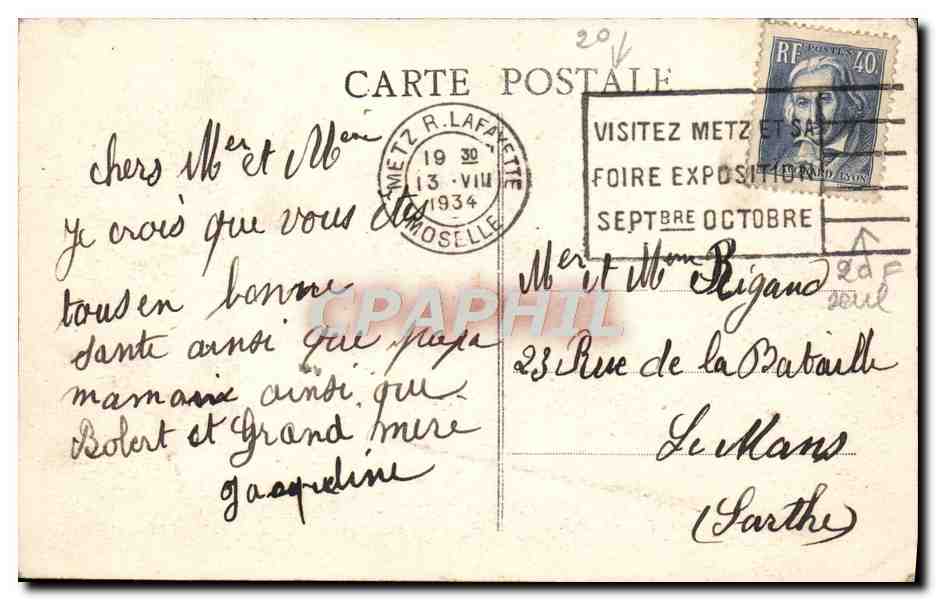 20
CARTE POSTALE
RF POSTES 40
METZ R. LAFAYETTE
19 30
13 · VIII
1934
MOSELLE
VISITEZ METZ ET SA
FOIRE EXPOSITION
SEPTBRE OCTOBRE
chers Mer et Mme
je crois que vous êtes
tous en bonne
santé ainsi que papa
maman ainsi que
Bobert et Grand mère
Jacqueline
Mer et Mme Rigaud
23 Rue de la Bataille
Le Mans
(Sarthe)
20 F
seul
CPAPHIL